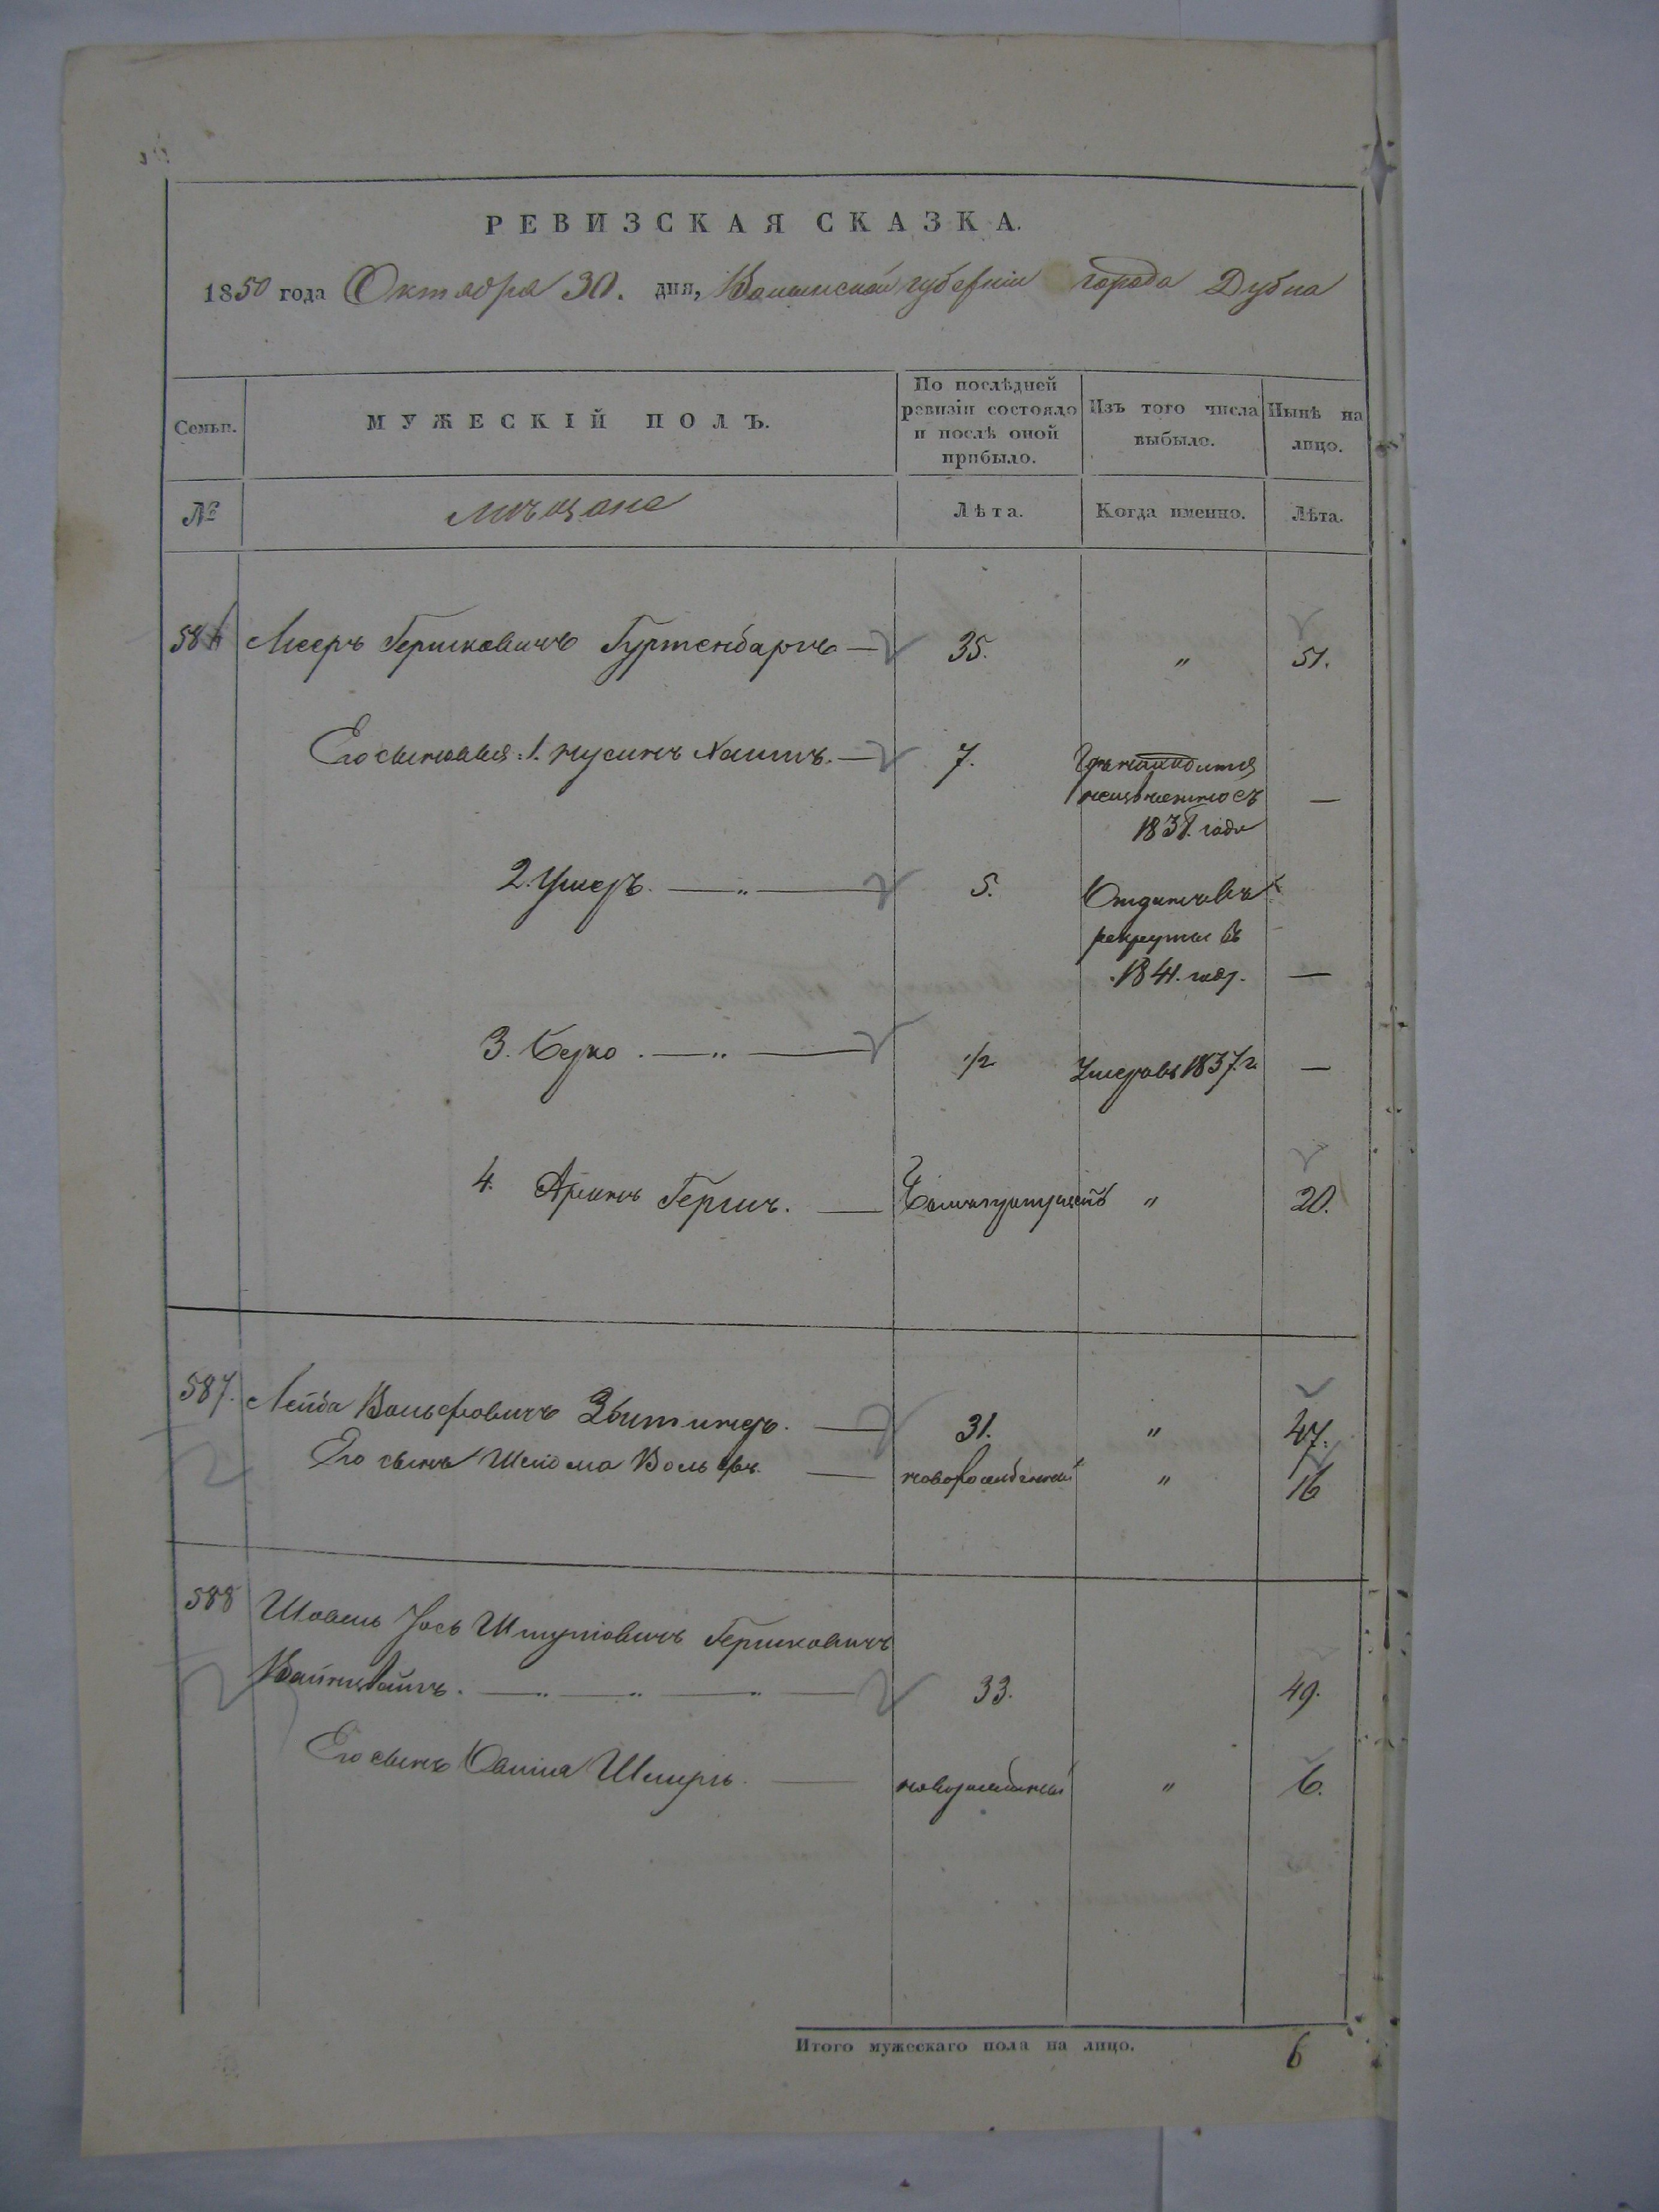 РЕВИЗСКАЯ СКАЗКА.
1850 года Октября 30. дня, Волынской губерніи города Дубна
Семьи.
МУЖЕСКІЙ ПОЛЪ.
По послѣдней
ревизіи состояло
и послѣ оной
прибыло.
Изъ того числа
выбыло.
Нынѣ на
лицо.
№
мѣщане
Лѣта.
Когда именно.
Лѣта.
Мееръ Гершковичъ Гуртенбаргъ — 35. " 51.
Его сыновья: 1. Нусинъ Хаимъ. — 7.
Гдѣ находится
неизвѣстно съ
1838. года —
2. Ушеръ. — " — 5.
Отданъ въ
рекруты въ
1841. году. —
3. Берко. — " — 1/2 Умеръ въ 1837. г. —
4. Аронъ Гершъ. — " 20.
587. Лейба Вольфовичъ — 31. " 47.
Его сынъ Шлiома Вольфъ. — новорожденный " 16
588 Шовель Іось Шмулiовичъ Гершковичъ
Вайнцвайгъ. — " — " — " — 33. 49.
Его сынъ Овшiя Шмуль. — новорожденный " 6.
Итого мужескаго пола на лицо. 6